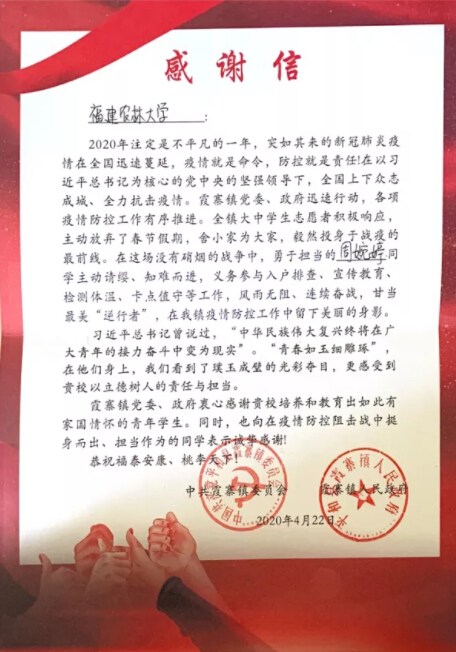 感谢信
福建农林大学：
2020年注定是不平凡的一年，突如其来的新冠肺炎疫
情在全国迅速蔓延，疫情就是命令，防控就是责任!在以习
近平总书记为核心的党中央的坚强领导下，全国上下众志
成城、全力抗击疫情。霞寨镇党委、政府迅速行动，各项
疫情防控工作有序推进。全镇大中学生志愿者积极响应，
主动放弃了春节假期，舍小家为大家，毅然投身于战疫的
最前线。在这场没有硝烟的战争中，勇于担当的周婉婷同
学主动请缨、知难而进，义务参与入户排查、宣传教育、
检测体温、卡点值守等工作，风雨无阻、连续奋战，甘当
最美“逆行者”，在我镇疫情防控工作中留下美丽的身影。
习近平总书记曾说过，“中华民族伟大复兴终将在广
大青年的接力奋斗中变为现实”。“青春如玉细雕琢”，
在他们身上，我们看到了璞玉成璧的光彩夺目，更感受到
贵校以立德树人的责任与担当。
霞寨镇党委、政府衷心感谢贵校培养和教育出如此有
家国情怀的青年学生。同时，也向在疫情防控阻击战中挺
身而出、担当作为的同学表示诚挚感谢!
恭祝福泰安康、桃李天下!
中共霞寨镇委员会 霞寨镇人民政府
2020年4月22日
平和县霞寨镇人民政府